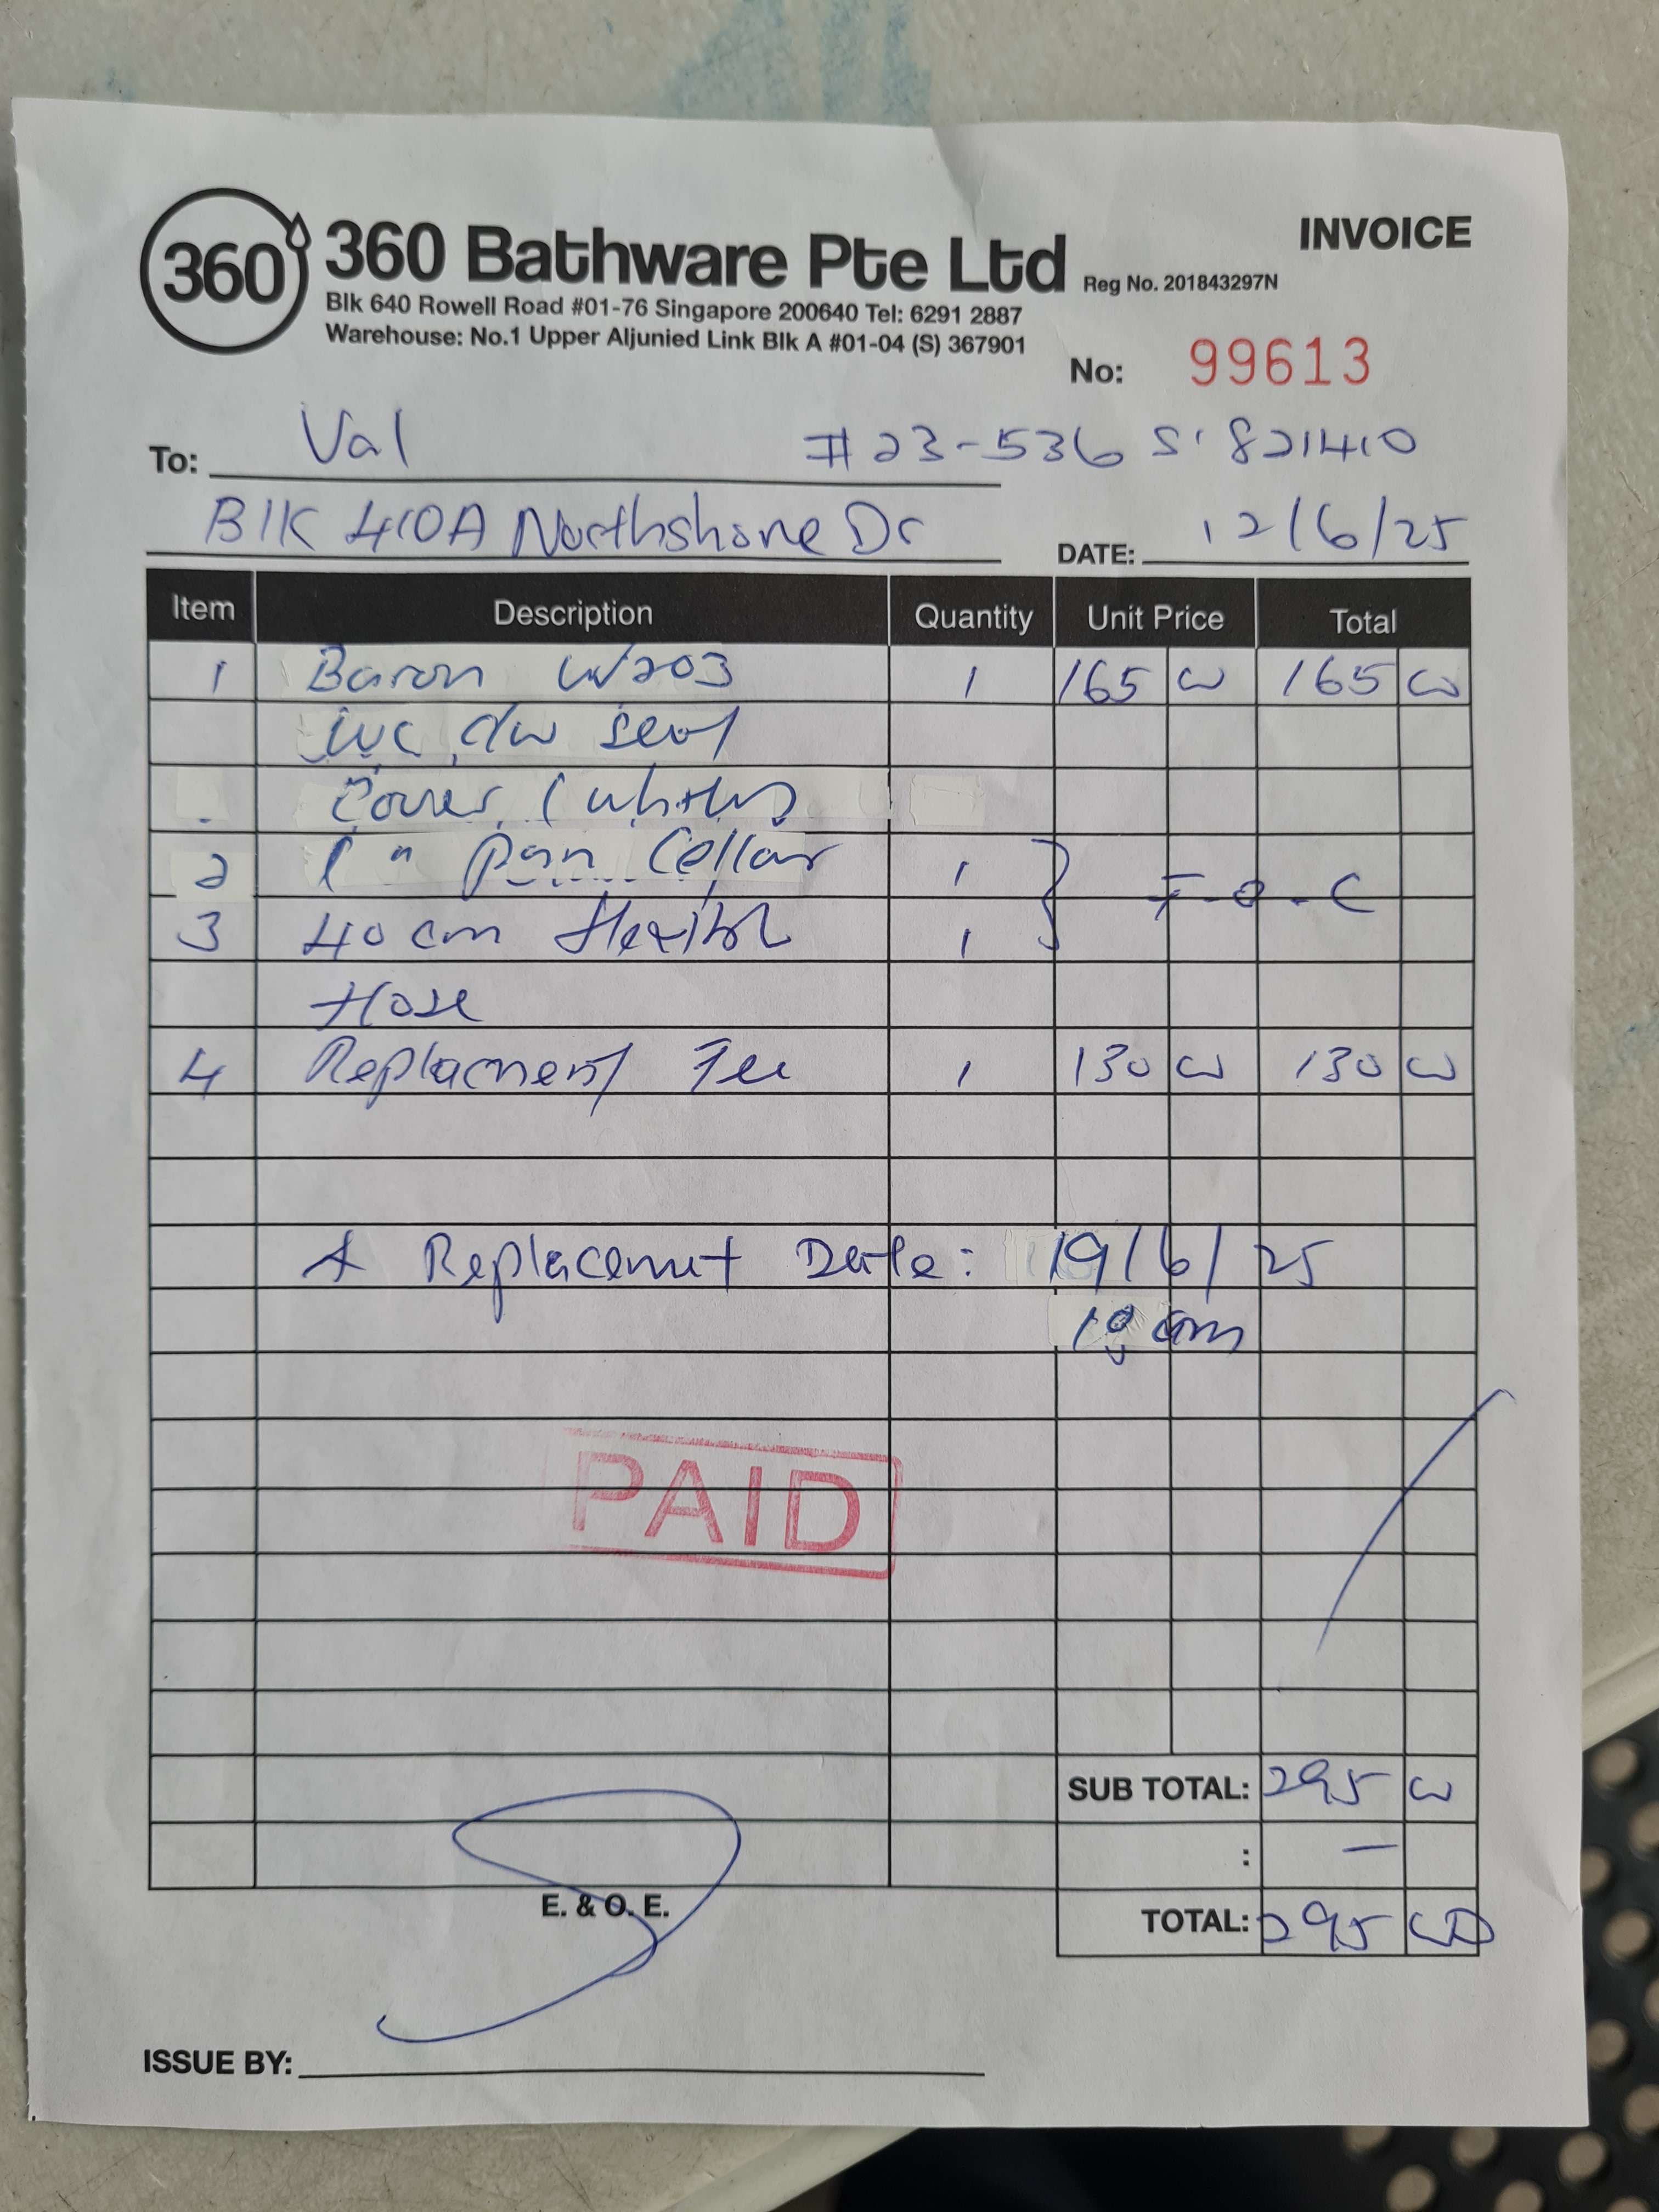 360
360 Bathware Pte Ltd
Reg No. 201843297N
INVOICE
Blk 640 Rowell Road #01-76 Singapore 200640 Tel: 6291 2887
Warehouse: No.1 Upper Aljunied Link Blk A #01-04 (S) 367901
No: 99613
To: Val #23-536 S'821410
Blk 410A Northshore Dr DATE: 12/6/25
Item Description Quantity Unit Price Total
1 Baron W203 1 165 00 165 00
WC c/w seat
Cover (white)
2 Pan Collar 1
F.O.C
3 40cm flexible 1
Hose
4 Replacment Fee 1 130 00 130 00
Replacemnt Date: 19/6/25
am
PAID
SUB TOTAL: 295 00
: —
E. & O. E.
TOTAL: 295 00
ISSUE BY: